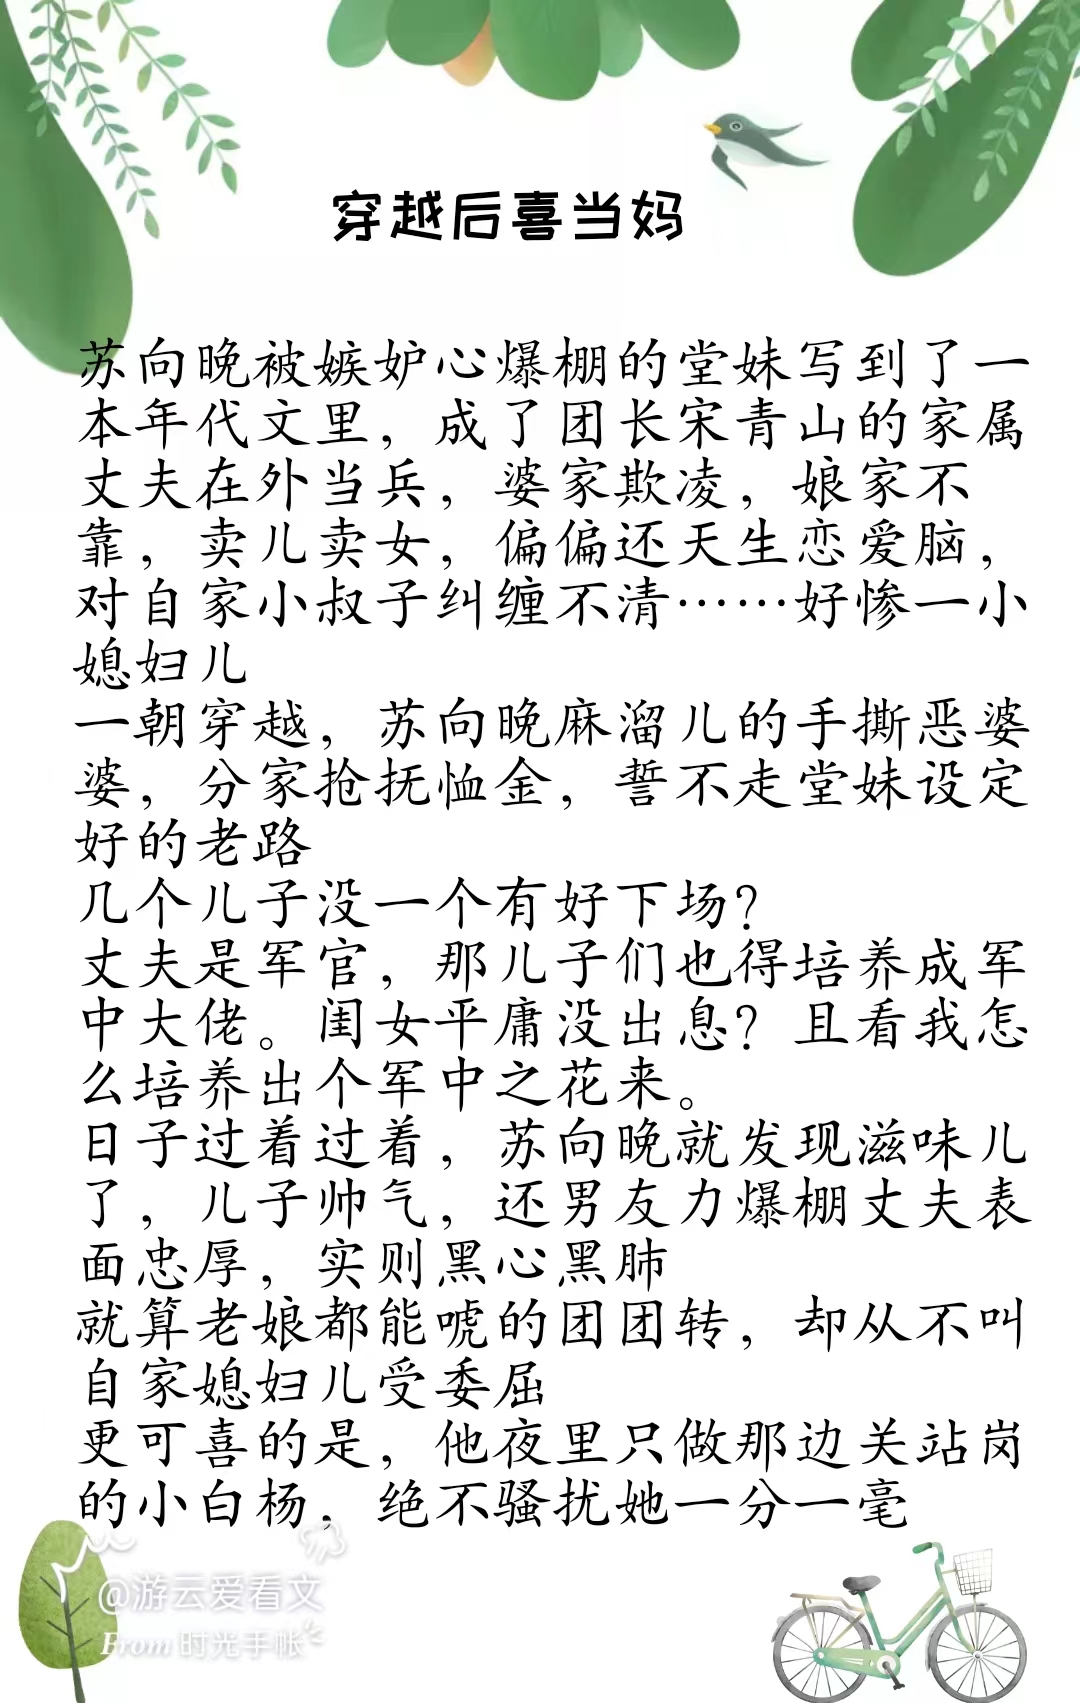 穿越后喜当妈
苏向晚被嫉妒心爆棚的堂妹写到了一
本年代文里，成了团长宋青山的家属
丈夫在外当兵，婆家欺凌，娘家不
靠，卖儿卖女，偏偏还天生恋爱脑，
对自家小叔子纠缠不清……好惨一小
媳妇儿
一朝穿越，苏向晚麻溜儿的手撕恶婆
婆，分家抢抚恤金，誓不走堂妹设定
好的老路
几个儿子没一个有好下场？
丈夫是军官，那儿子们也得培养成军
中大佬。闺女平庸没出息？且看我怎
么培养出个军中之花来。
日子过着过着，苏向晚就发现滋味儿
了，儿子帅气，还男友力爆棚丈夫表
面忠厚，实则黑心黑肺
就算老娘都能唬的团团转，却从不叫
自家媳妇儿受委屈
更可喜的是，他夜里只做那边关站岗
的小白杨，绝不骚扰她一分一毫
@游云爱看文
From 时光手帐